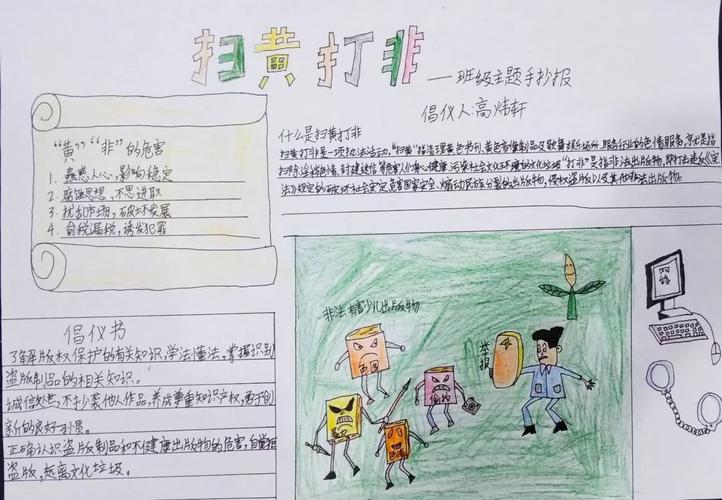 扫黄打非
——班级主题手抄报
倡仪人:高炜轩
“黄”“非”的危害
1. 蛊惑人心,影响稳定
2. 腐蚀思想,不思进取
3. 扰乱市场,破坏发展
4. 偷税漏税,诱发犯罪
什么是扫黄打非
扫黄打非是一项执法活动。“扫黄”指清理黄色书刊、黄色音像制品及歌舞娱乐场所、服务行业的色情服务,就是扫
除淫秽色情、封建迷信等危害人们身心健康、污染社会文化环境的文化垃圾“打非”是指非法出版物,即打击违反《宪
法》规定的破坏社会安定、危害国家安全、煽动民族分裂的出版物,侵权盗版以及其他非法出版物。
倡仪书
了解版权保护的有关知识,学法懂法,掌握识别
盗版制品的相关知识。
诚信处世,不抄袭他人作品,养成尊重知识产权,勇于创
新的良好习惯。
正确认识盗版制品和不健康出版物的危害,自觉拒
盗版,远离文化垃圾。
非法有害少儿出版物
色情
举报
网络